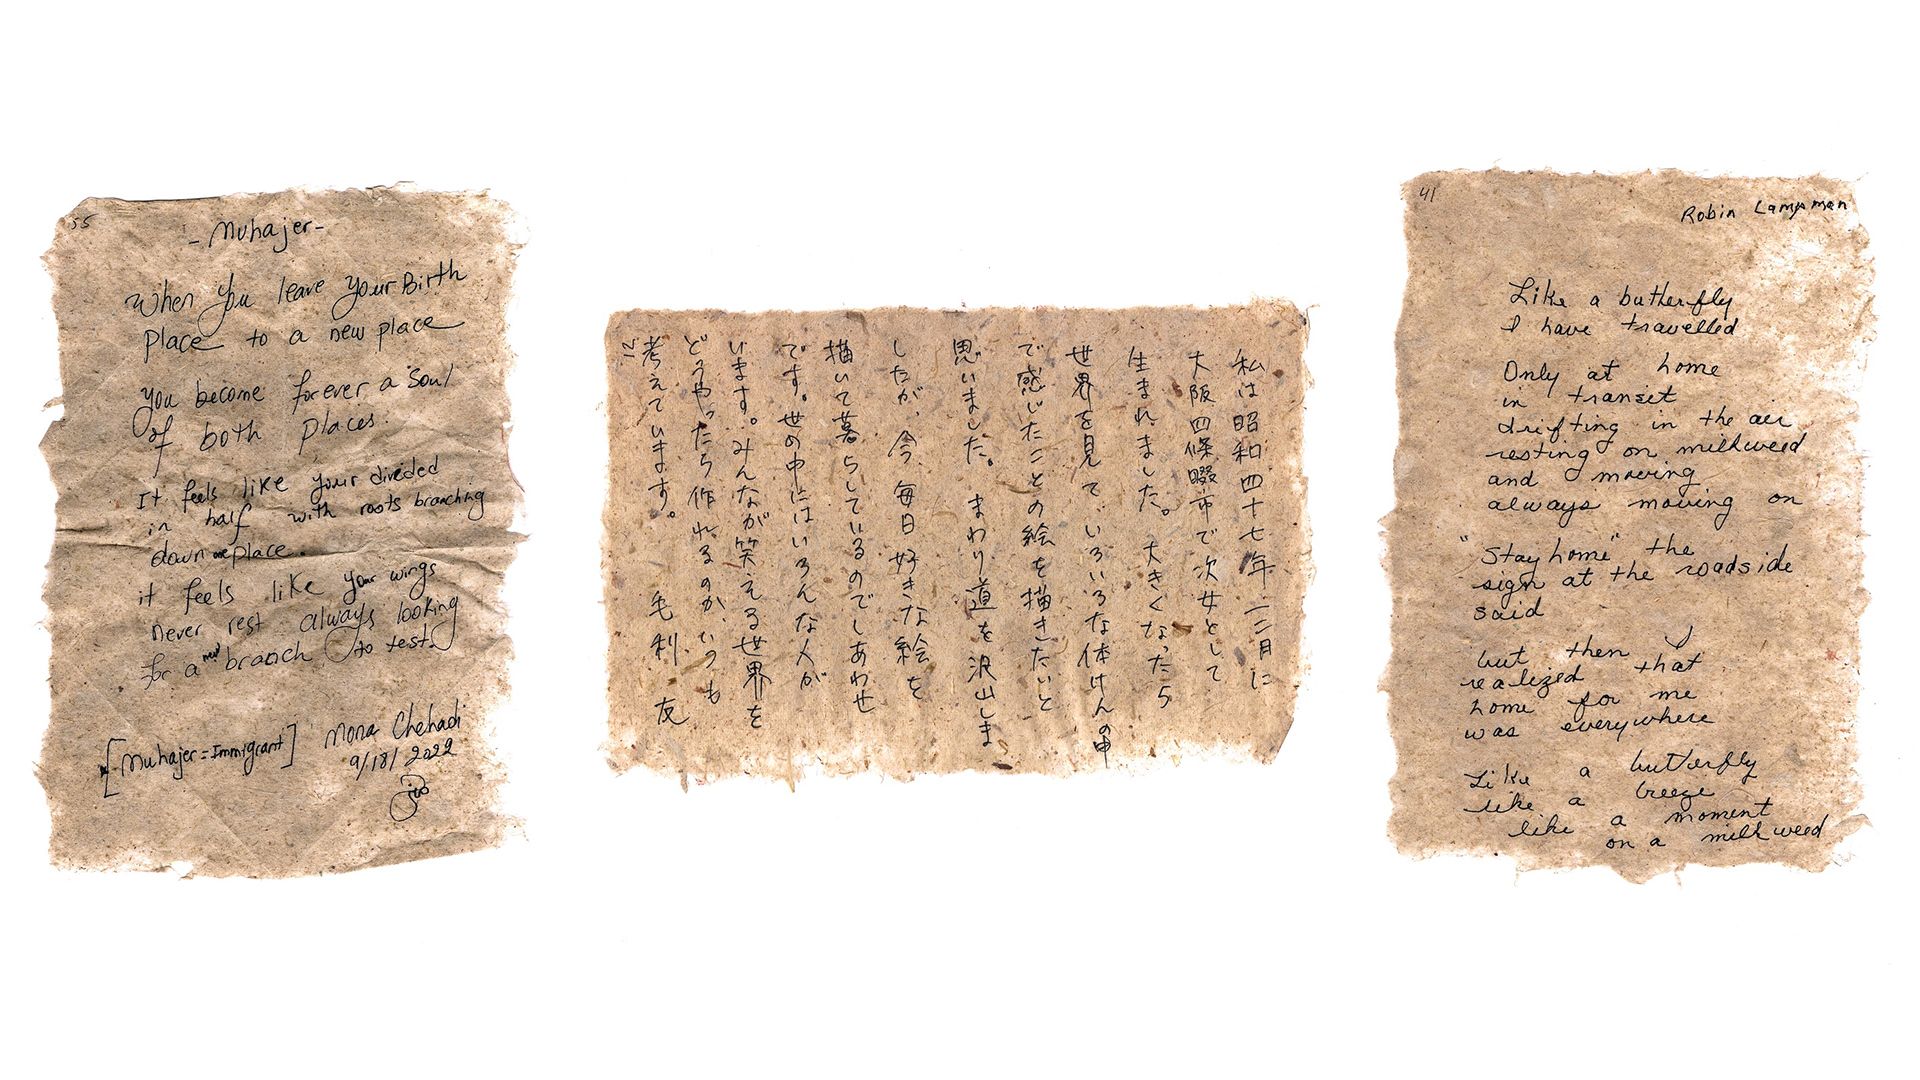 55
- Muhajer -
When you leave your Birth
Place to a new place
you become forever a soul
of both places.
It feels like your divided
in half with roots branching
down one place.
it feels like your wings
never rest always looking
for a new branch to test.
[Muhajer = Immigrant]
Mona Chehadi
9/18/2022
私は昭和四十七年一二月に
大阪四條畷市で次女として
生まれました。大きくなったら
世界を見て、いろいろな体けんの中
で感じたことの絵を描きたいと
思いました。まわり道を沢山しま
したが、今、毎日好きな絵を
描いて暮らしているのでしあわせ
です。世の中にはいろんな人が
います。みんなが笑える世界を
どうやったら作れるのか、いつも
考えています。 毛利 友
12
41
Robin Lampman
Like a butterfly
I have travelled
Only at home
in transit
drifting in the air
resting on milkweed
and moving
always moving on
"Stay home" the
sign at the roadside
said
but then I
realized that
home for me
was everywhere
Like a butterfly
like a breeze
like a moment
on a milkweed